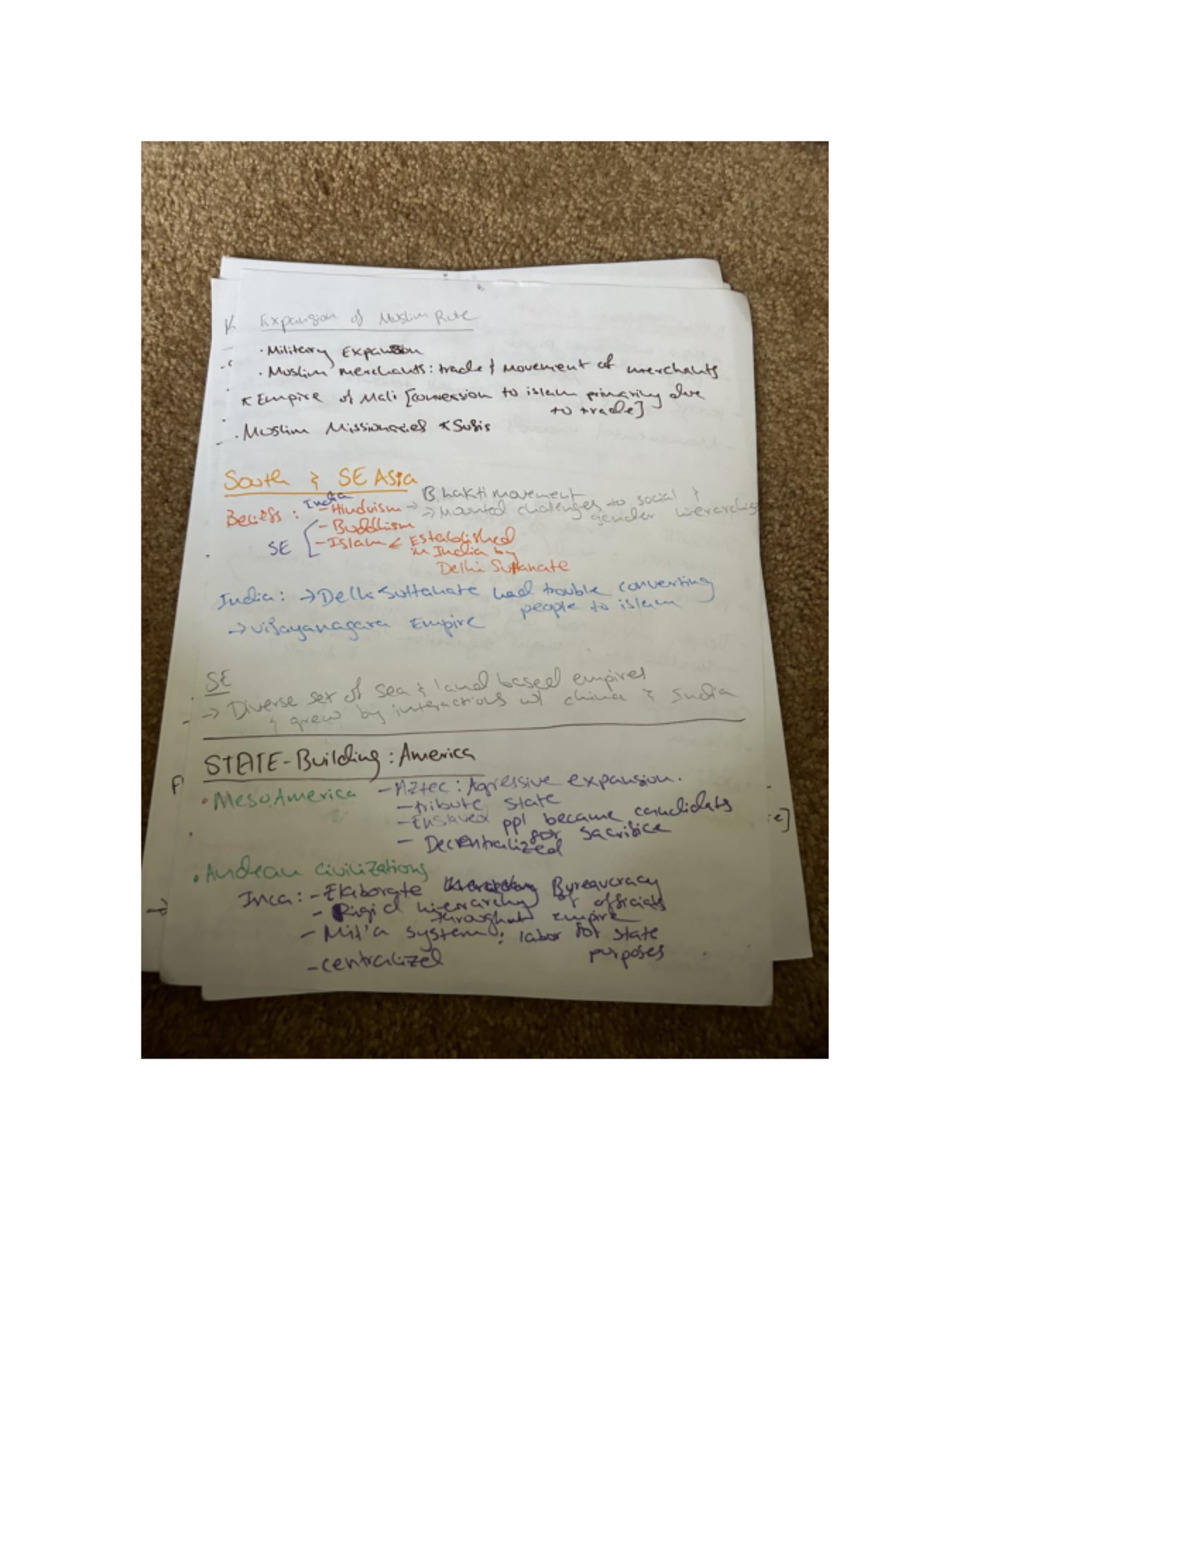 Expansion of Muslim Rule
· Military Expansion
· Muslim merchants: trade & movement of merchants
* Empire of Mali [conversion to islam primarily due
to trade]
· Muslim Missionaries * Sufis
South & SE Asia
Beliefs: India - Hinduism → Bhakti movement
→ Mounted challenges to social &
gender hierarchies
- Buddhism
SE - Islam < Established
in India by
Delhi Sultanate
India: → Delhi Sultanate had trouble converting
people to islam
→ Vijayanagara Empire
SE
→ Diverse set of sea & land based empires
& grew by interactions w/ china & India
STATE-Building: America
· MesoAmerica - Aztec: Agressive expansion.
- tribute state
- Enslaved ppl became candidates
for sacrifice
- Decentralized
· Andean civilizations
Inca: - Elaborate Bureaucracy
- Rigid hierarchy of officials
throughout empire
- Mit'a system: labor for state
purposes
- centralized